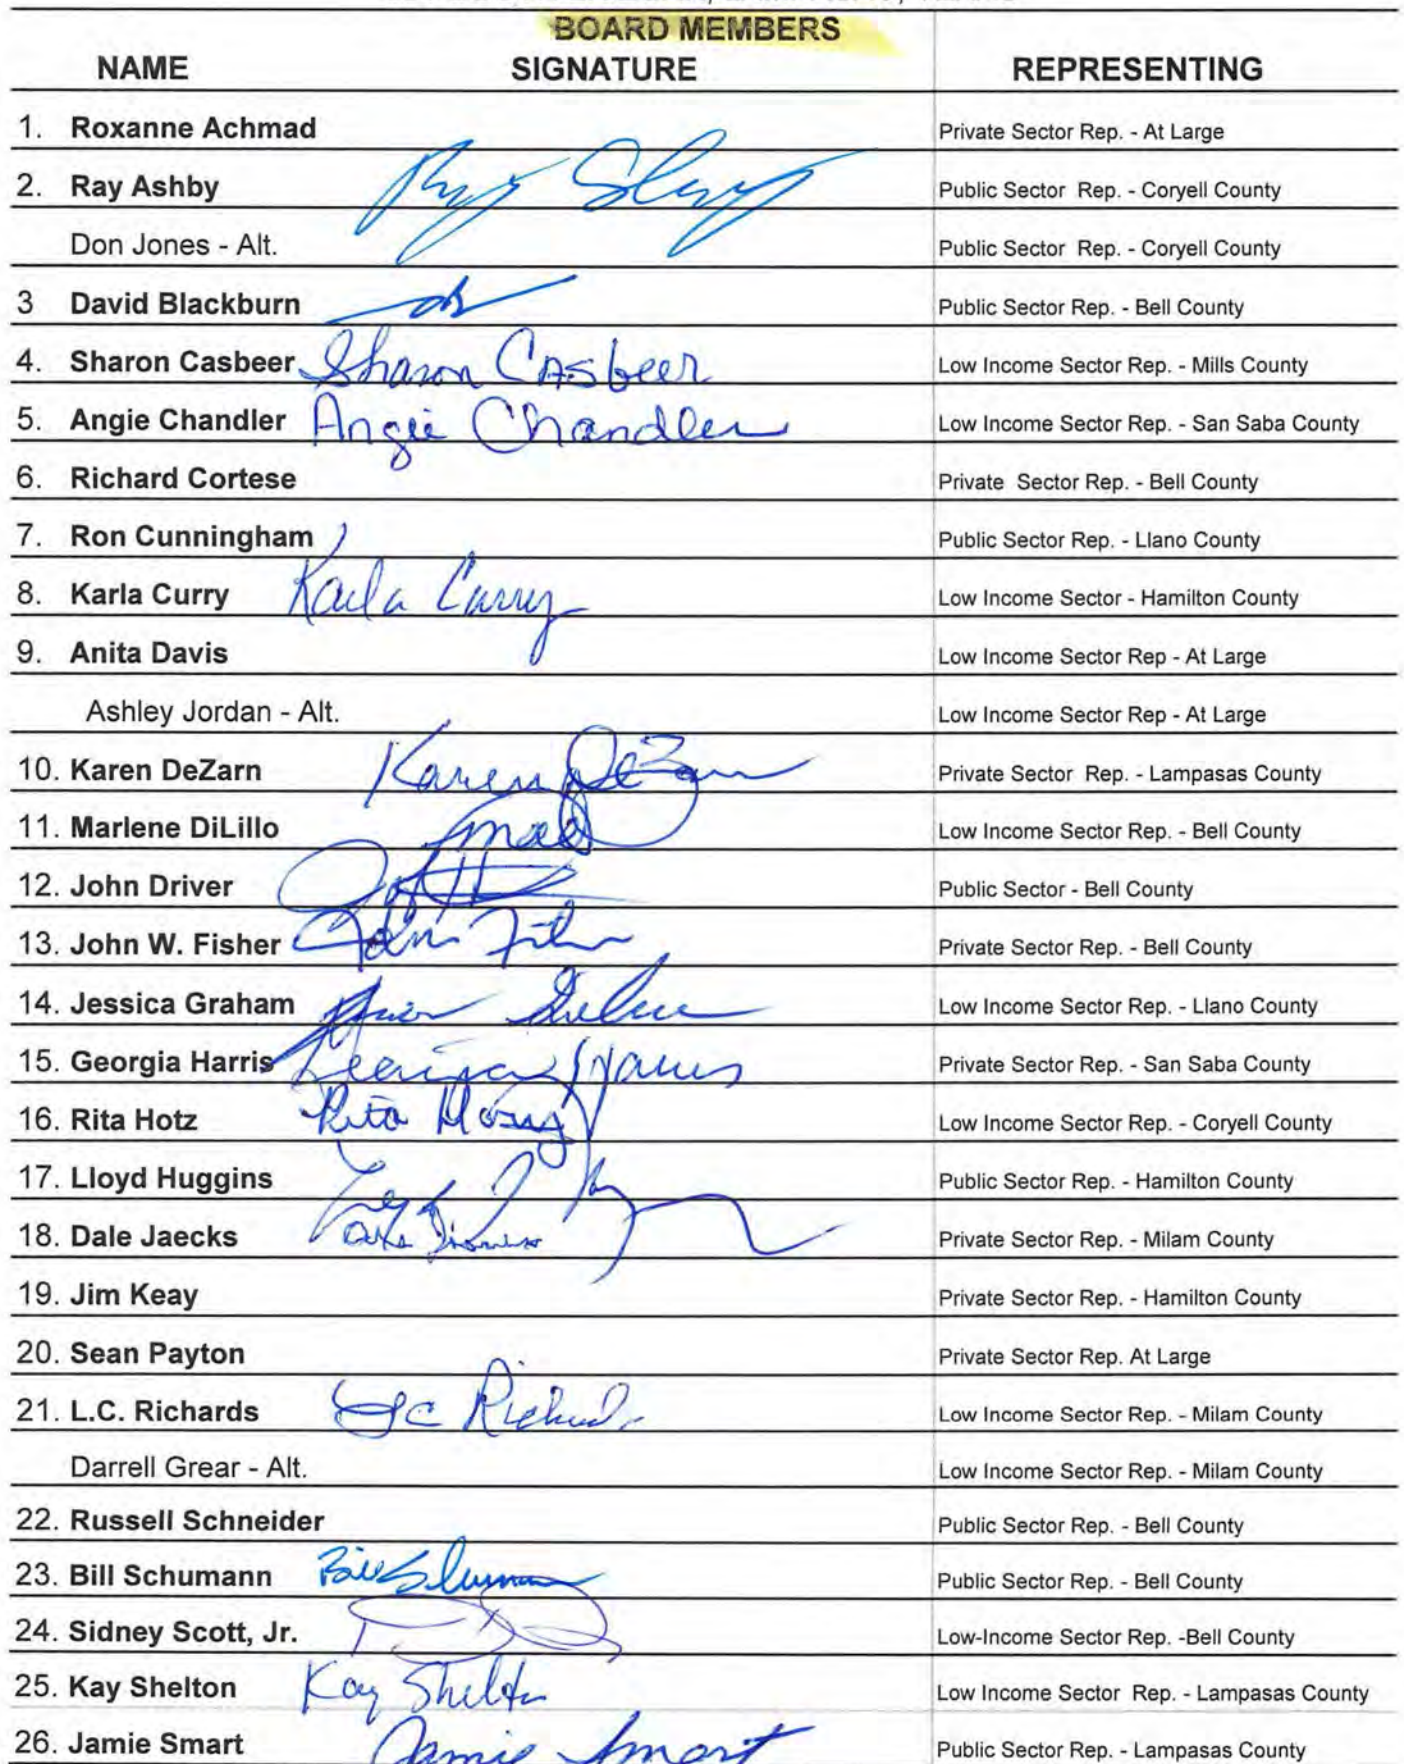 BOARD MEMBERS
NAME SIGNATURE REPRESENTING
1. Roxanne Achmad Private Sector Rep. - At Large
2. Ray Ashby Public Sector Rep. - Coryell County
Don Jones - Alt. Public Sector Rep. - Coryell County
3 David Blackburn Public Sector Rep. - Bell County
4. Sharon Casbeer Sharon Casbeer Low Income Sector Rep. - Mills County
5. Angie Chandler Angie Chandler Low Income Sector Rep. - San Saba County
6. Richard Cortese Private Sector Rep. - Bell County
7. Ron Cunningham Public Sector Rep. - Llano County
8. Karla Curry Karla Curry Low Income Sector - Hamilton County
9. Anita Davis Low Income Sector Rep - At Large
Ashley Jordan - Alt. Low Income Sector Rep - At Large
10. Karen DeZarn Karen DeZarn Private Sector Rep. - Lampasas County
11. Marlene DiLillo Low Income Sector Rep. - Bell County
12. John Driver Public Sector - Bell County
13. John W. Fisher John Fisher Private Sector Rep. - Bell County
14. Jessica Graham Low Income Sector Rep. - Llano County
15. Georgia Harris Georgia Harris Private Sector Rep. - San Saba County
16. Rita Hotz Rita Low Income Sector Rep. - Coryell County
17. Lloyd Huggins Public Sector Rep. - Hamilton County
18. Dale Jaecks Private Sector Rep. - Milam County
19. Jim Keay Private Sector Rep. - Hamilton County
20. Sean Payton Private Sector Rep. At Large
21. L.C. Richards LC Richards Low Income Sector Rep. - Milam County
Darrell Grear - Alt. Low Income Sector Rep. - Milam County
22. Russell Schneider Public Sector Rep. - Bell County
23. Bill Schumann Bill Schumann Public Sector Rep. - Bell County
24. Sidney Scott, Jr. Low-Income Sector Rep. -Bell County
25. Kay Shelton Kay Shelton Low Income Sector Rep. - Lampasas County
26. Jamie Smart Jamie Smart Public Sector Rep. - Lampasas County